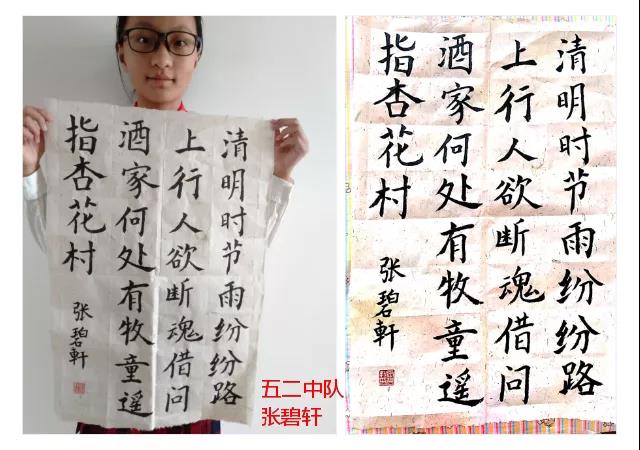 清明时节雨纷纷路
上行人欲断魂借问
酒家何处有牧童遥
指杏花村
张碧軒
五二中队
张碧轩
清明时节雨纷纷路
上行人欲断魂借问
酒家何处有牧童遥
指杏花村
张碧軒